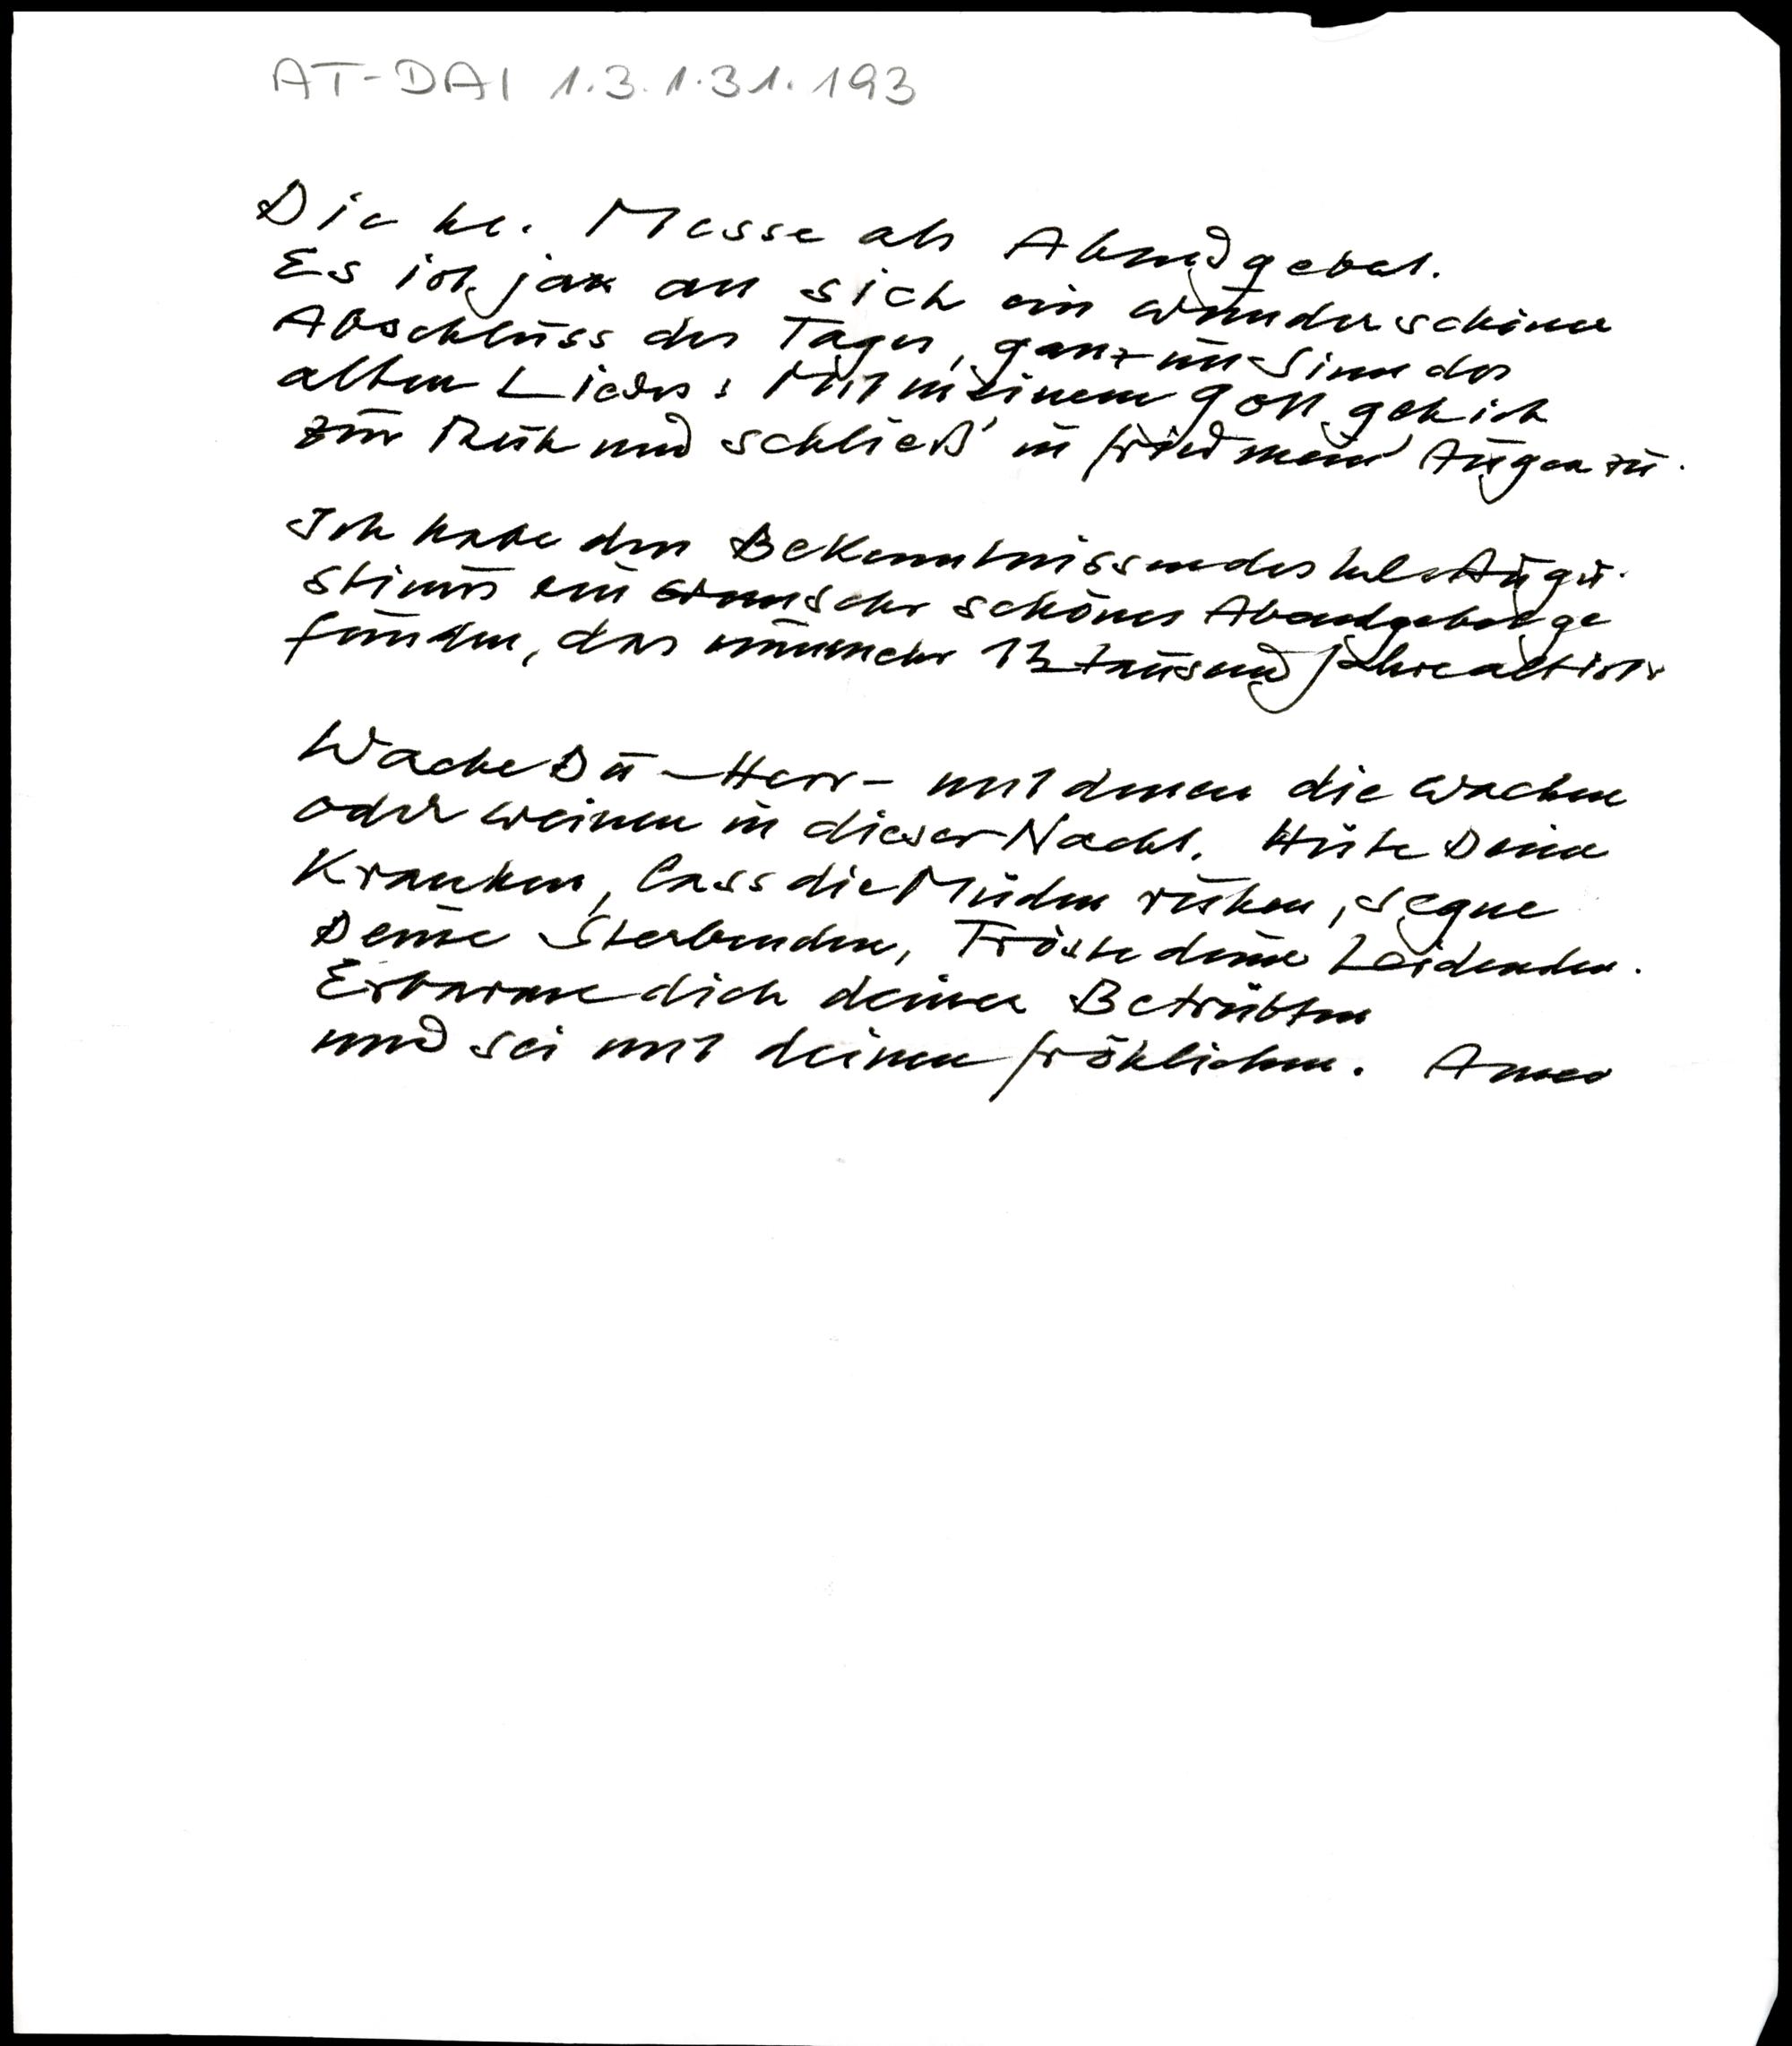 AT-DAI 1.3.1.31.193
Die hl. Messe als Abendgebet.
Es ist ja an sich ein wunderschöner
Abschluss des Tages, ganz im Sinn des
alten Liedes: Mit meinem Gott geh ich
zur Ruh und schließ' in Fried mein' Augen zu.
Ich habe den Bekenntnissen des hl. Augu-
stinus ein schönes Abendgebet ge
funden, das nunmehr 1½ tausend Jahre alt ist.
Wache Du – Herr – mit denen die wachen
oder weinen in dieser Nacht. Hüte Deine
Kranken, lass die Müden ruhen, segne
Deine Sterbenden, Tröste deine Leidenden.
Erbarme dich deiner Betrübten
und sei mit deinen Fröhlichen. Amen